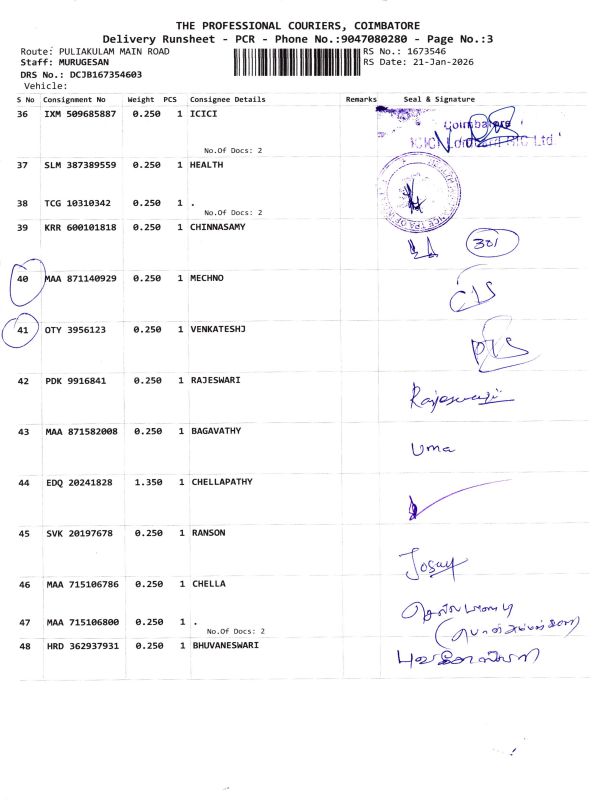 THE PROFESSIONAL COURIERS, COIMBATORE
Delivery Runsheet - PCR - Phone No.:9047080280 - Page No.:3
Route: PULIAKULAM MAIN ROAD RS No.: 1673546
Staff: MURUGESAN RS Date: 21-Jan-2026
DRS No.: DCJB167354603
Vehicle:
S No Consignment No Weight PCS Consignee Details Remarks Seal & Signature
36 IXM 509685887 0.250 1 ICICI
Coimbatore
No.Of Docs: 2
37 SLM 387389559 0.250 1 HEALTH
38 TCG 10310342 0.250 1 .
No.Of Docs: 2
39 KRR 600101818 0.250 1 CHINNASAMY
301
40 MAA 871140929 0.250 1 MECHNO
41 OTY 3956123 0.250 1 VENKATESHJ
42 PDK 9916841 0.250 1 RAJESWARI
Rajeswari
43 MAA 871582008 0.250 1 BAGAVATHY
Uma
44 EDQ 20241828 1.350 1 CHELLAPATHY
45 SVK 20197678 0.250 1 RANSON
46 MAA 715106786 0.250 1 CHELLA
47 MAA 715106800 0.250 1 .
No.Of Docs: 2
48 HRD 362937931 0.250 1 BHUVANESWARI